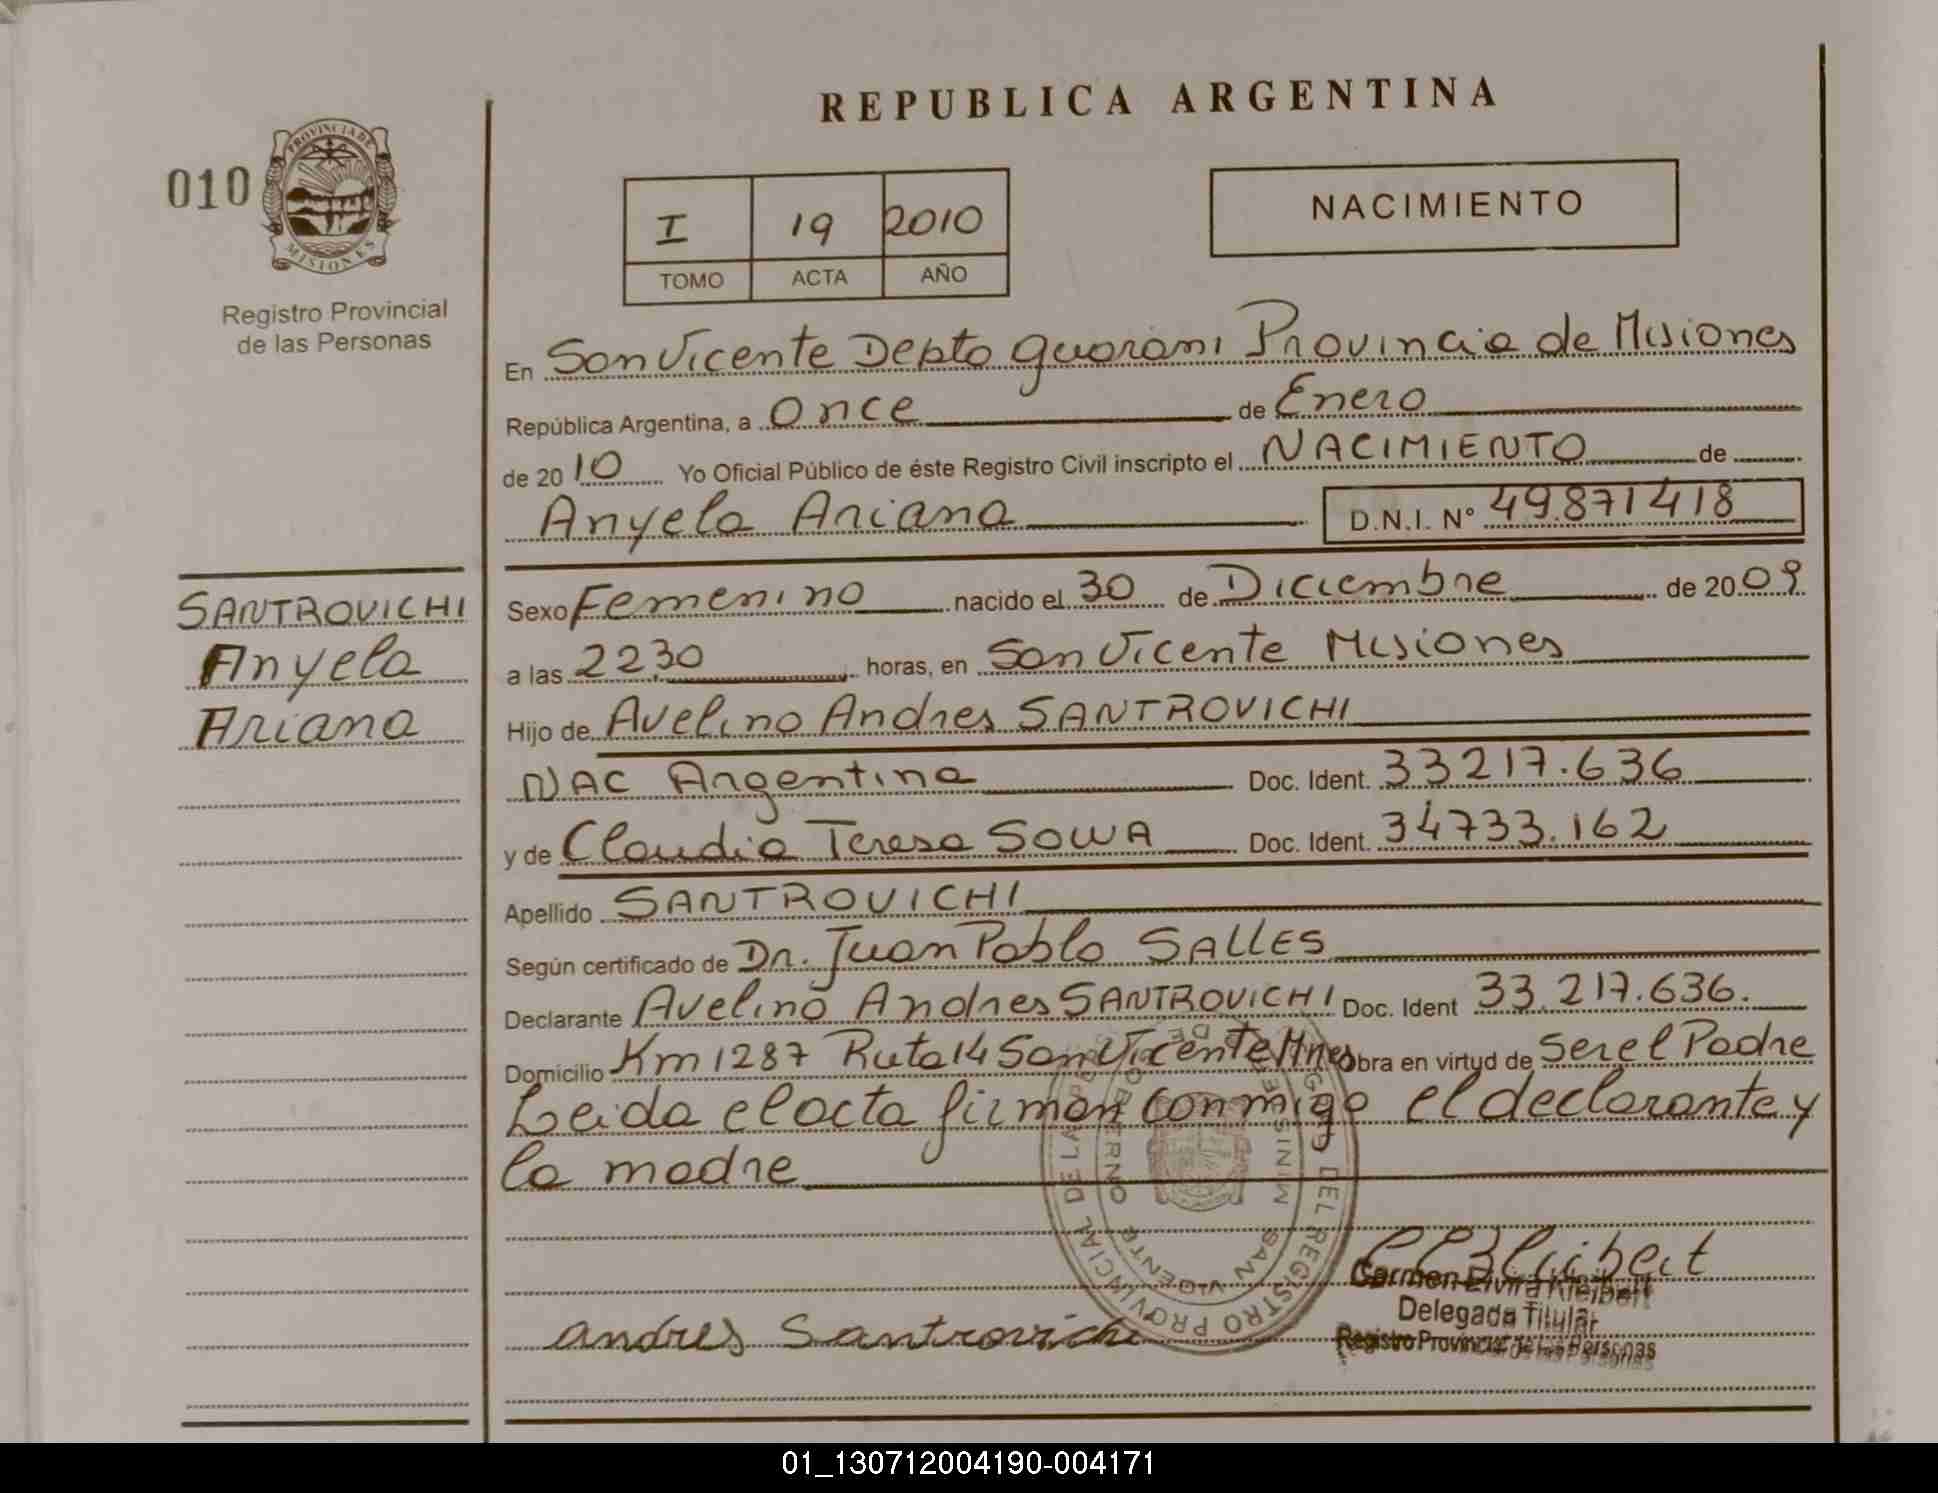 REPUBLICA ARGENTINA
010
PROVINCIA DE
MISIONES
Registro Provincial
de las Personas
I 19 2010
TOMO ACTA AÑO
NACIMIENTO
En San Vicente Depto guarani Provincia de Misiones
República Argentina, a Once de Enero
de 2010 Yo Oficial Público de éste Registro Civil inscripto el NACIMIENTO de
Anyela Ariana D.N.I. Nº 49.871418
SANTROVICHI
Anyela
Ariana
Sexo Femenino nacido el 30 de Diciembre de 2009
a las 22,30 horas, en San Vicente Misiones
Hijo de Avelino Andres SANTROVICHI
NAC Argentina Doc. Ident. 33217.636
y de Claudia Teresa SOWA Doc. Ident. 34733.162
Apellido SANTROVICHI
Según certificado de Dr. Juan Pablo SALLES
Declarante Avelino Andres SANTROVICHI Doc. Ident 33.217.636.
Domicilio Km 1287 Ruta 14 San Vicente Mnes Obra en virtud de Ser el Padre
Leida el acta firman conmigo el declarante y
la madre
Carmen Elvira Kleibert
Delegada Titular
Registro Provincial de las Personas
andres Santrovichi
01_130712004190-004171